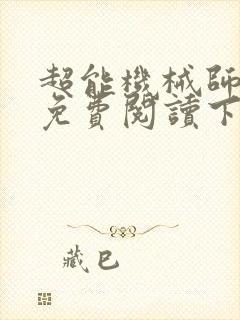 超能機械師
免費閱讀下
藏巴